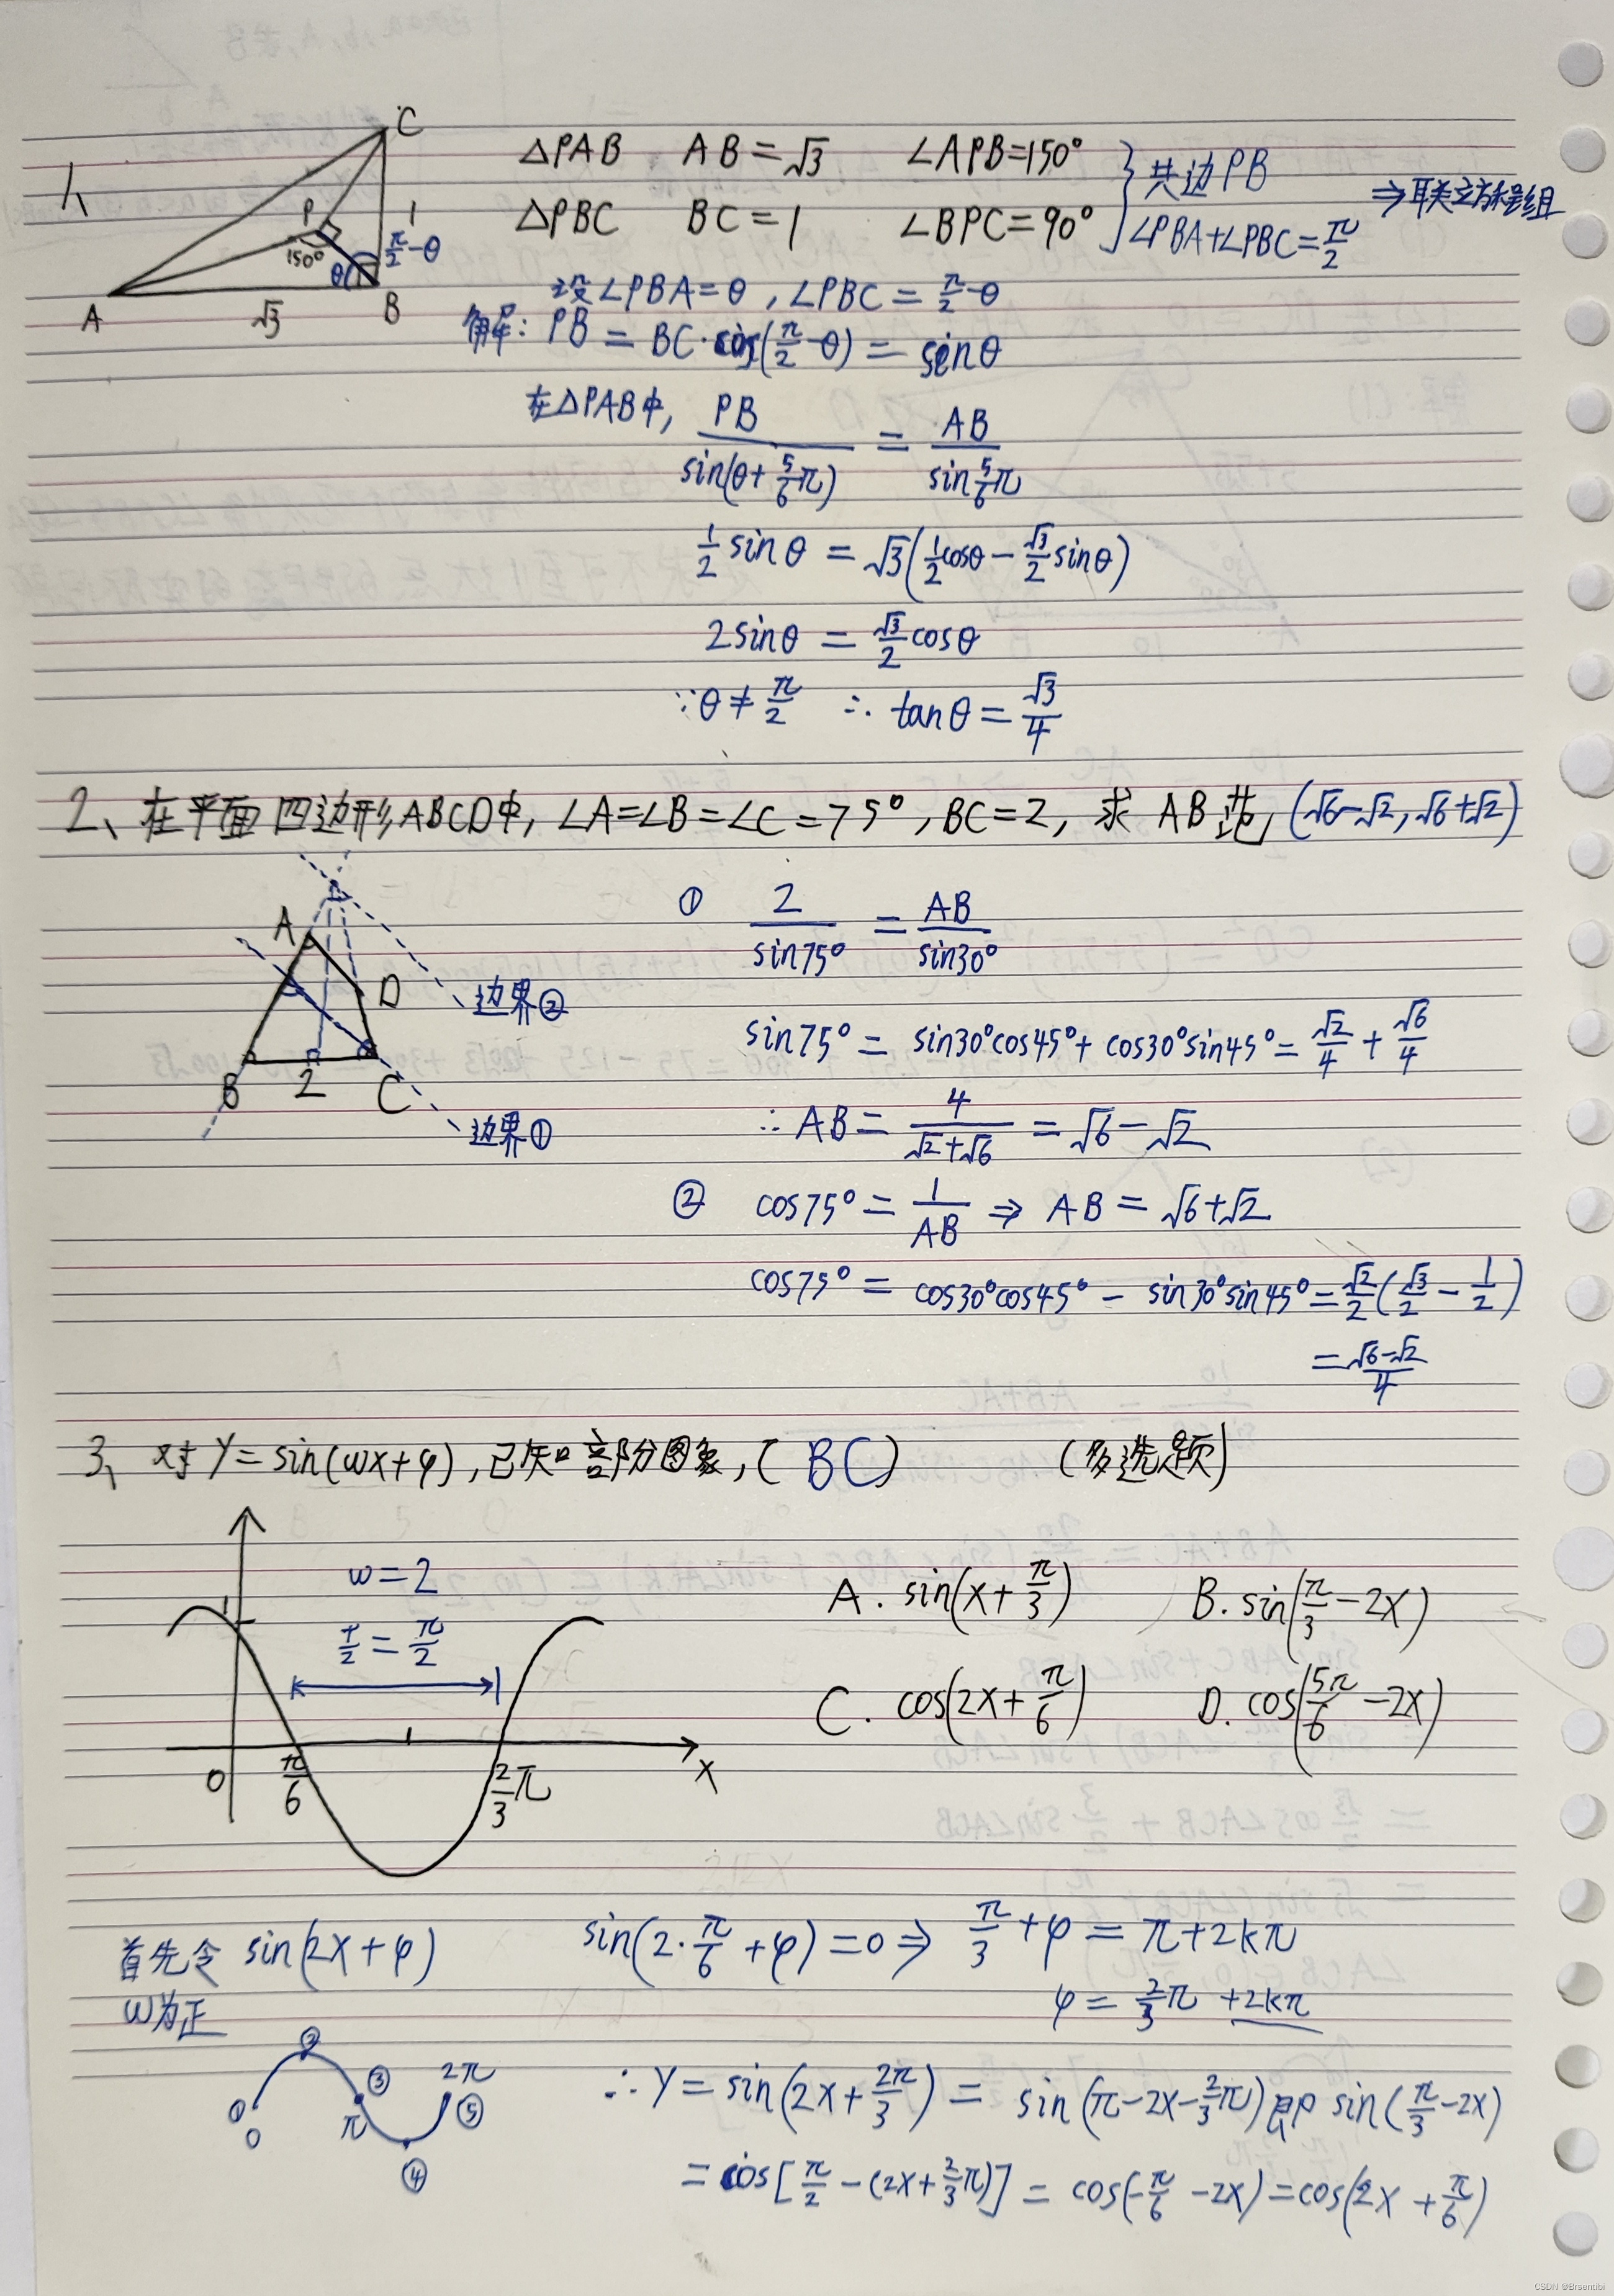 1、
C
P
1
150°
θ
π/2-θ
A
√3
B
△PAB AB=√3 ∠APB=150°
△PBC BC=1 ∠BPC=90°
共边PB
∠PBA+∠PBC=π/2
⇒联立方程组
设∠PBA=θ,∠PBC=π/2-θ
解:PB=BC·cos(π/2-θ)=sinθ
在△PAB中, PB/sin(θ+5/6π)=AB/sin5/6π
1/2sinθ=√3(1/2cosθ-√3/2sinθ)
2sinθ=√3/2cosθ
∵θ≠π/2 ∴tanθ=√3/4
2、在平面四边形ABCD中,∠A=∠B=∠C=75°,BC=2,求AB范(√6-√2,√6+√2)
A
D
B
2
C
边界②
边界①
① 2/sin75°=AB/sin30°
sin75°=sin30°cos45°+cos30°sin45°=√2/4+√6/4
∴AB=4/(√2+√6)=√6-√2
② cos75°=1/AB⇒AB=√6+√2
cos75°=cos30°cos45°-sin30°sin45°=√2/2(√3/2-1/2)
=(√6-√2)/4
3、对Y=sin(ωx+φ),已知部分图象,(BC) (多选题)
ω=2
T/2=π/2
1
O
π/6
2/3π
X
A.sin(x+π/3) B.sin(π/3-2x)
C.cos(2x+π/6) D.cos(5π/6-2x)
首先令sin(2x+φ) sin(2·π/6+φ)=0⇒π/3+φ=π+2kπ
ω为正
φ=2/3π+2kπ
① ② ③ ④ ⑤
0 π 2π
∴Y=sin(2x+2π/3)=sin(π-2x-2/3π)即sin(π/3-2x)
=cos[π/2-(2x+2/3π)]=cos(-π/6-2x)=cos(2x+π/6)
CSDN @Brsentibi